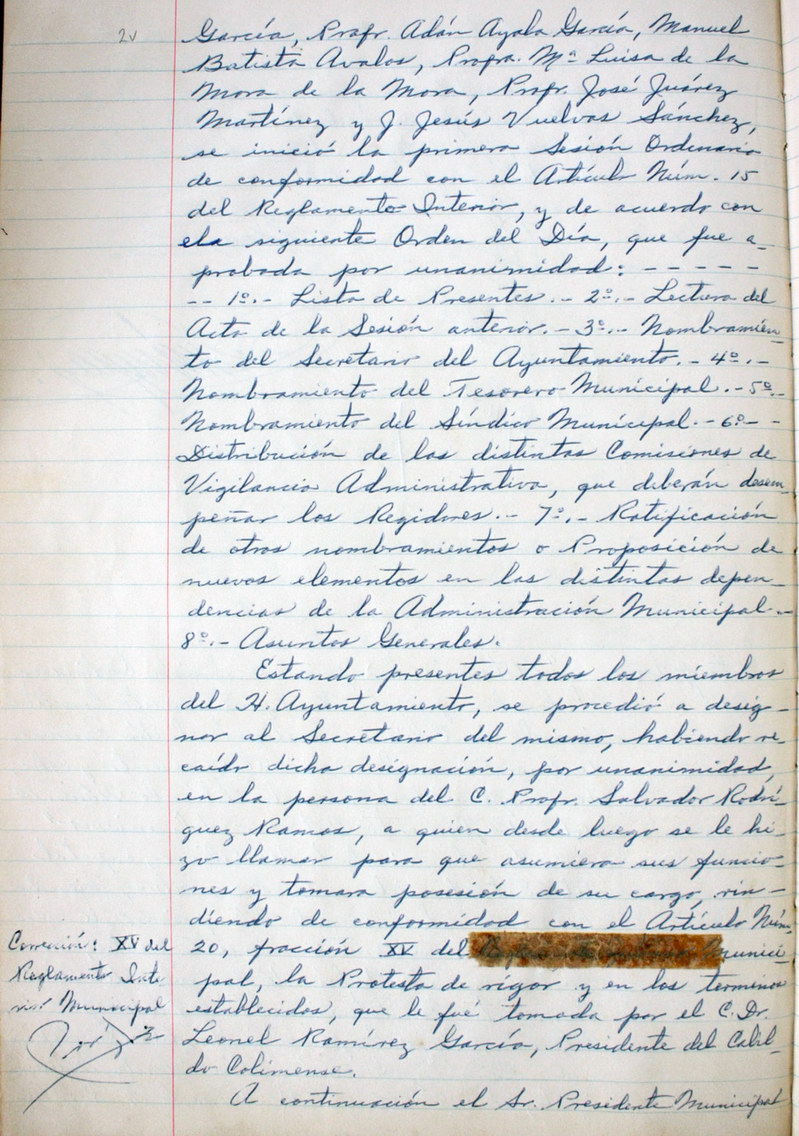 2v
García, Profr. Adán Ayala García, Manuel
Batista Avalos, Profra. Mª Luisa de la
Mora de la Mora, Profr. José Juárez
Martínez y J. Jesús Vuelvas Sánchez,
se inició la primera Sesión Ordinaria
de conformidad con el Artículo Núm. 15
del Reglamento Interior, y de acuerdo con
la siguiente Orden del Día, que fue a-
probada por unanimidad: - - - - -
-- 1º.- Lista de Presentes.- 2º.- Lectura del
Acta de la Sesión anterior.- 3º.- Nombramien-
to del Secretario del Ayuntamiento.- 4º.-
Nombramiento del Tesorero Municipal.- 5º.-
Nombramiento del Síndico Municipal.- 6º.- -
Distribución de las distintas Comisiones de
Vigilancia Administrativa, que deberán desem-
peñar los Regidores.- 7º.- Ratificación
de otros nombramientos o Proposición de
nuevos elementos en las distintas depen-
dencias de la Administración Municipal.-
8º.- Asuntos Generales.
Estando presentes todos los miembros
del H. Ayuntamiento, se procedió a desig-
nar al Secretario del mismo, habiendo re-
caído dicha designación, por unanimidad,
en la persona del C. Profr. Salvador Rodrí-
guez Ramos, a quien desde luego se le hi-
zo llamar para que asumiera sus funcio-
nes y tomara posesión de su cargo, rin-
diendo de conformidad con el Artículo Núm.
20, fracción XV del munici-
pal, la Protesta de rigor y en los terminos
establecidos, que le fué tomada por el C. Dr.
Leonel Ramírez García, Presidente del Cabil-
do Colimense.
A continuación el Sr. Presidente Municipal
Corrección: XV del
Reglamento Inte-
rior Municipal